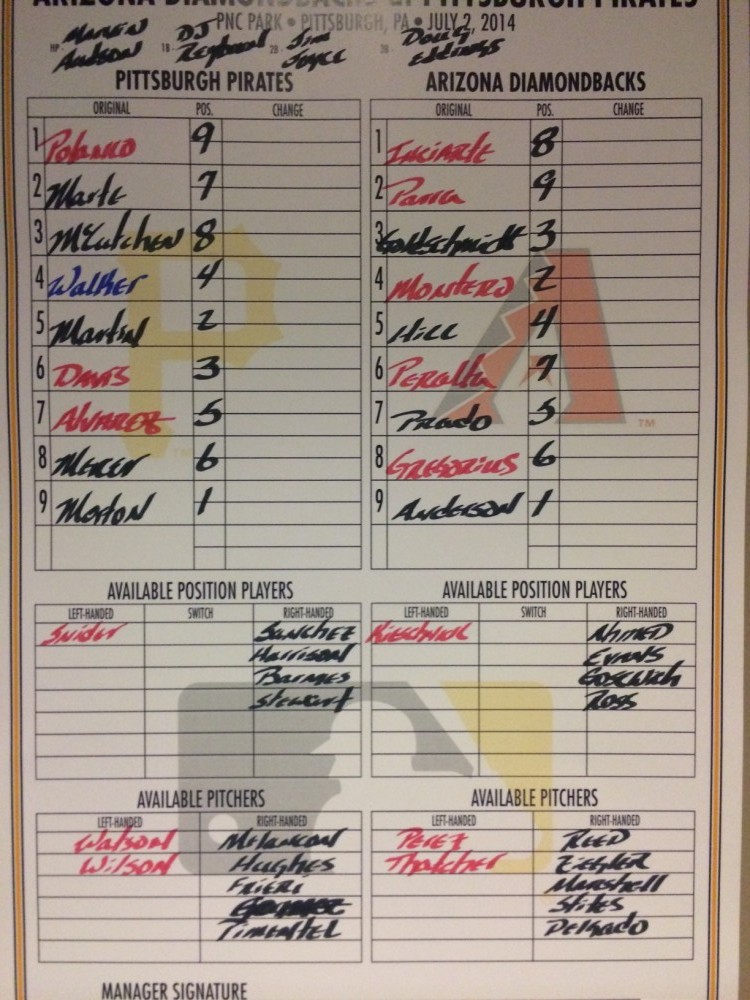 ARIZONA DIAMONDBACKS at PITTSBURGH PIRATES
PNC PARK • PITTSBURGH, PA • JULY 2, 2014
HP - 1B - DJ 2B - Jim 3B - Doug
Reyburn Joyce Eddings
PITTSBURGH PIRATES ARIZONA DIAMONDBACKS
ORIGINAL POS. CHANGE ORIGINAL POS. CHANGE
1 Polanco 9 1 Inciarte 8
2 Marte 7 2 Parra 9
3 McCutchen 8 3 Goldschmidt 3
4 Walker 4 4 Montero 2
5 Martin 2 5 Hill 4
6 Davis 3 6 Peralta 7
7 Alvarez 5 7 Prado 5
TM
8 Mercer 6 8 Gregorius 6
TM
9 Morton 1 9 Anderson 1
AVAILABLE POSITION PLAYERS AVAILABLE POSITION PLAYERS
LEFT-HANDED SWITCH RIGHT-HANDED LEFT-HANDED SWITCH RIGHT-HANDED
Snider Sanchez Kieschnick Ahmed
Harrison Evans
Barmes Gosewisch
Stewart Ross
AVAILABLE PITCHERS AVAILABLE PITCHERS
LEFT-HANDED RIGHT-HANDED LEFT-HANDED RIGHT-HANDED
Watson Melancon Perez Reed
Wilson Hughes Thatcher Ziegler
Frieri Marshall
Stites
Pimentel Delgado
MANAGER SIGNATURE